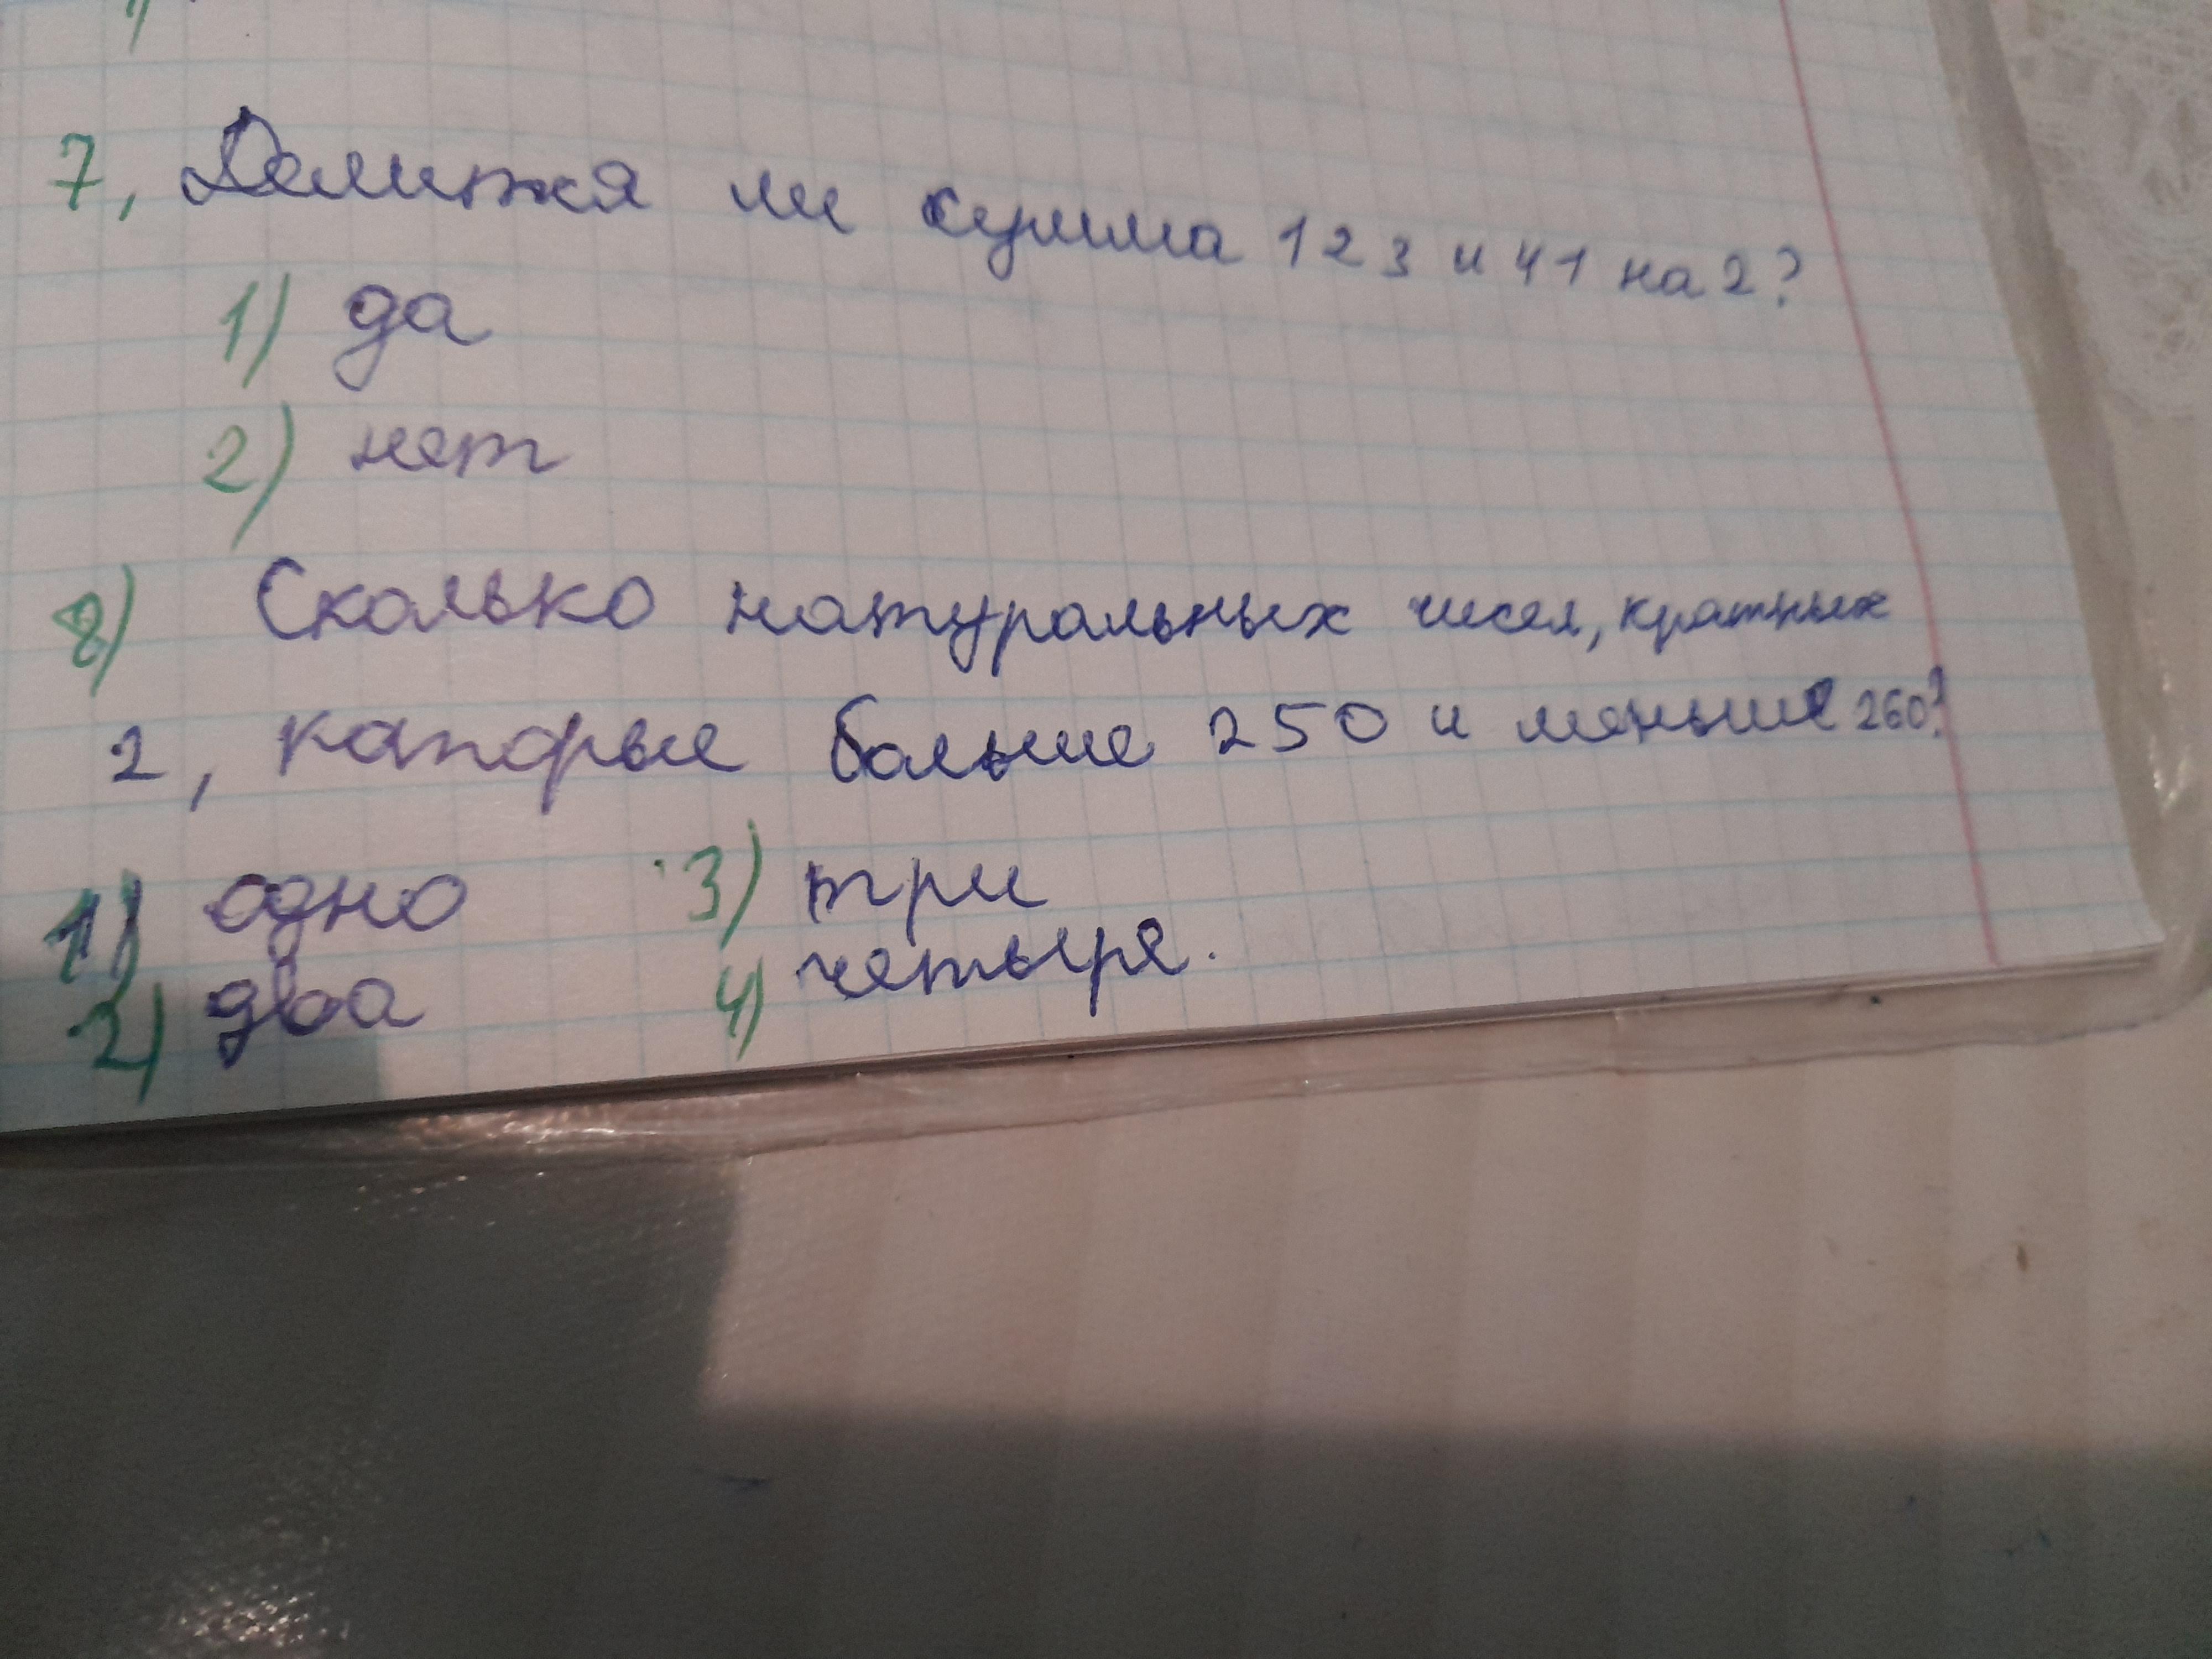 7, Делится ли сумма 123 и 41 на 2?
1) да
2) нет
8) Сколько натуральных чисел, кратных
2, которые больше 250 и меньше 260?
1) одно 3) три
2) два 4) четыре.